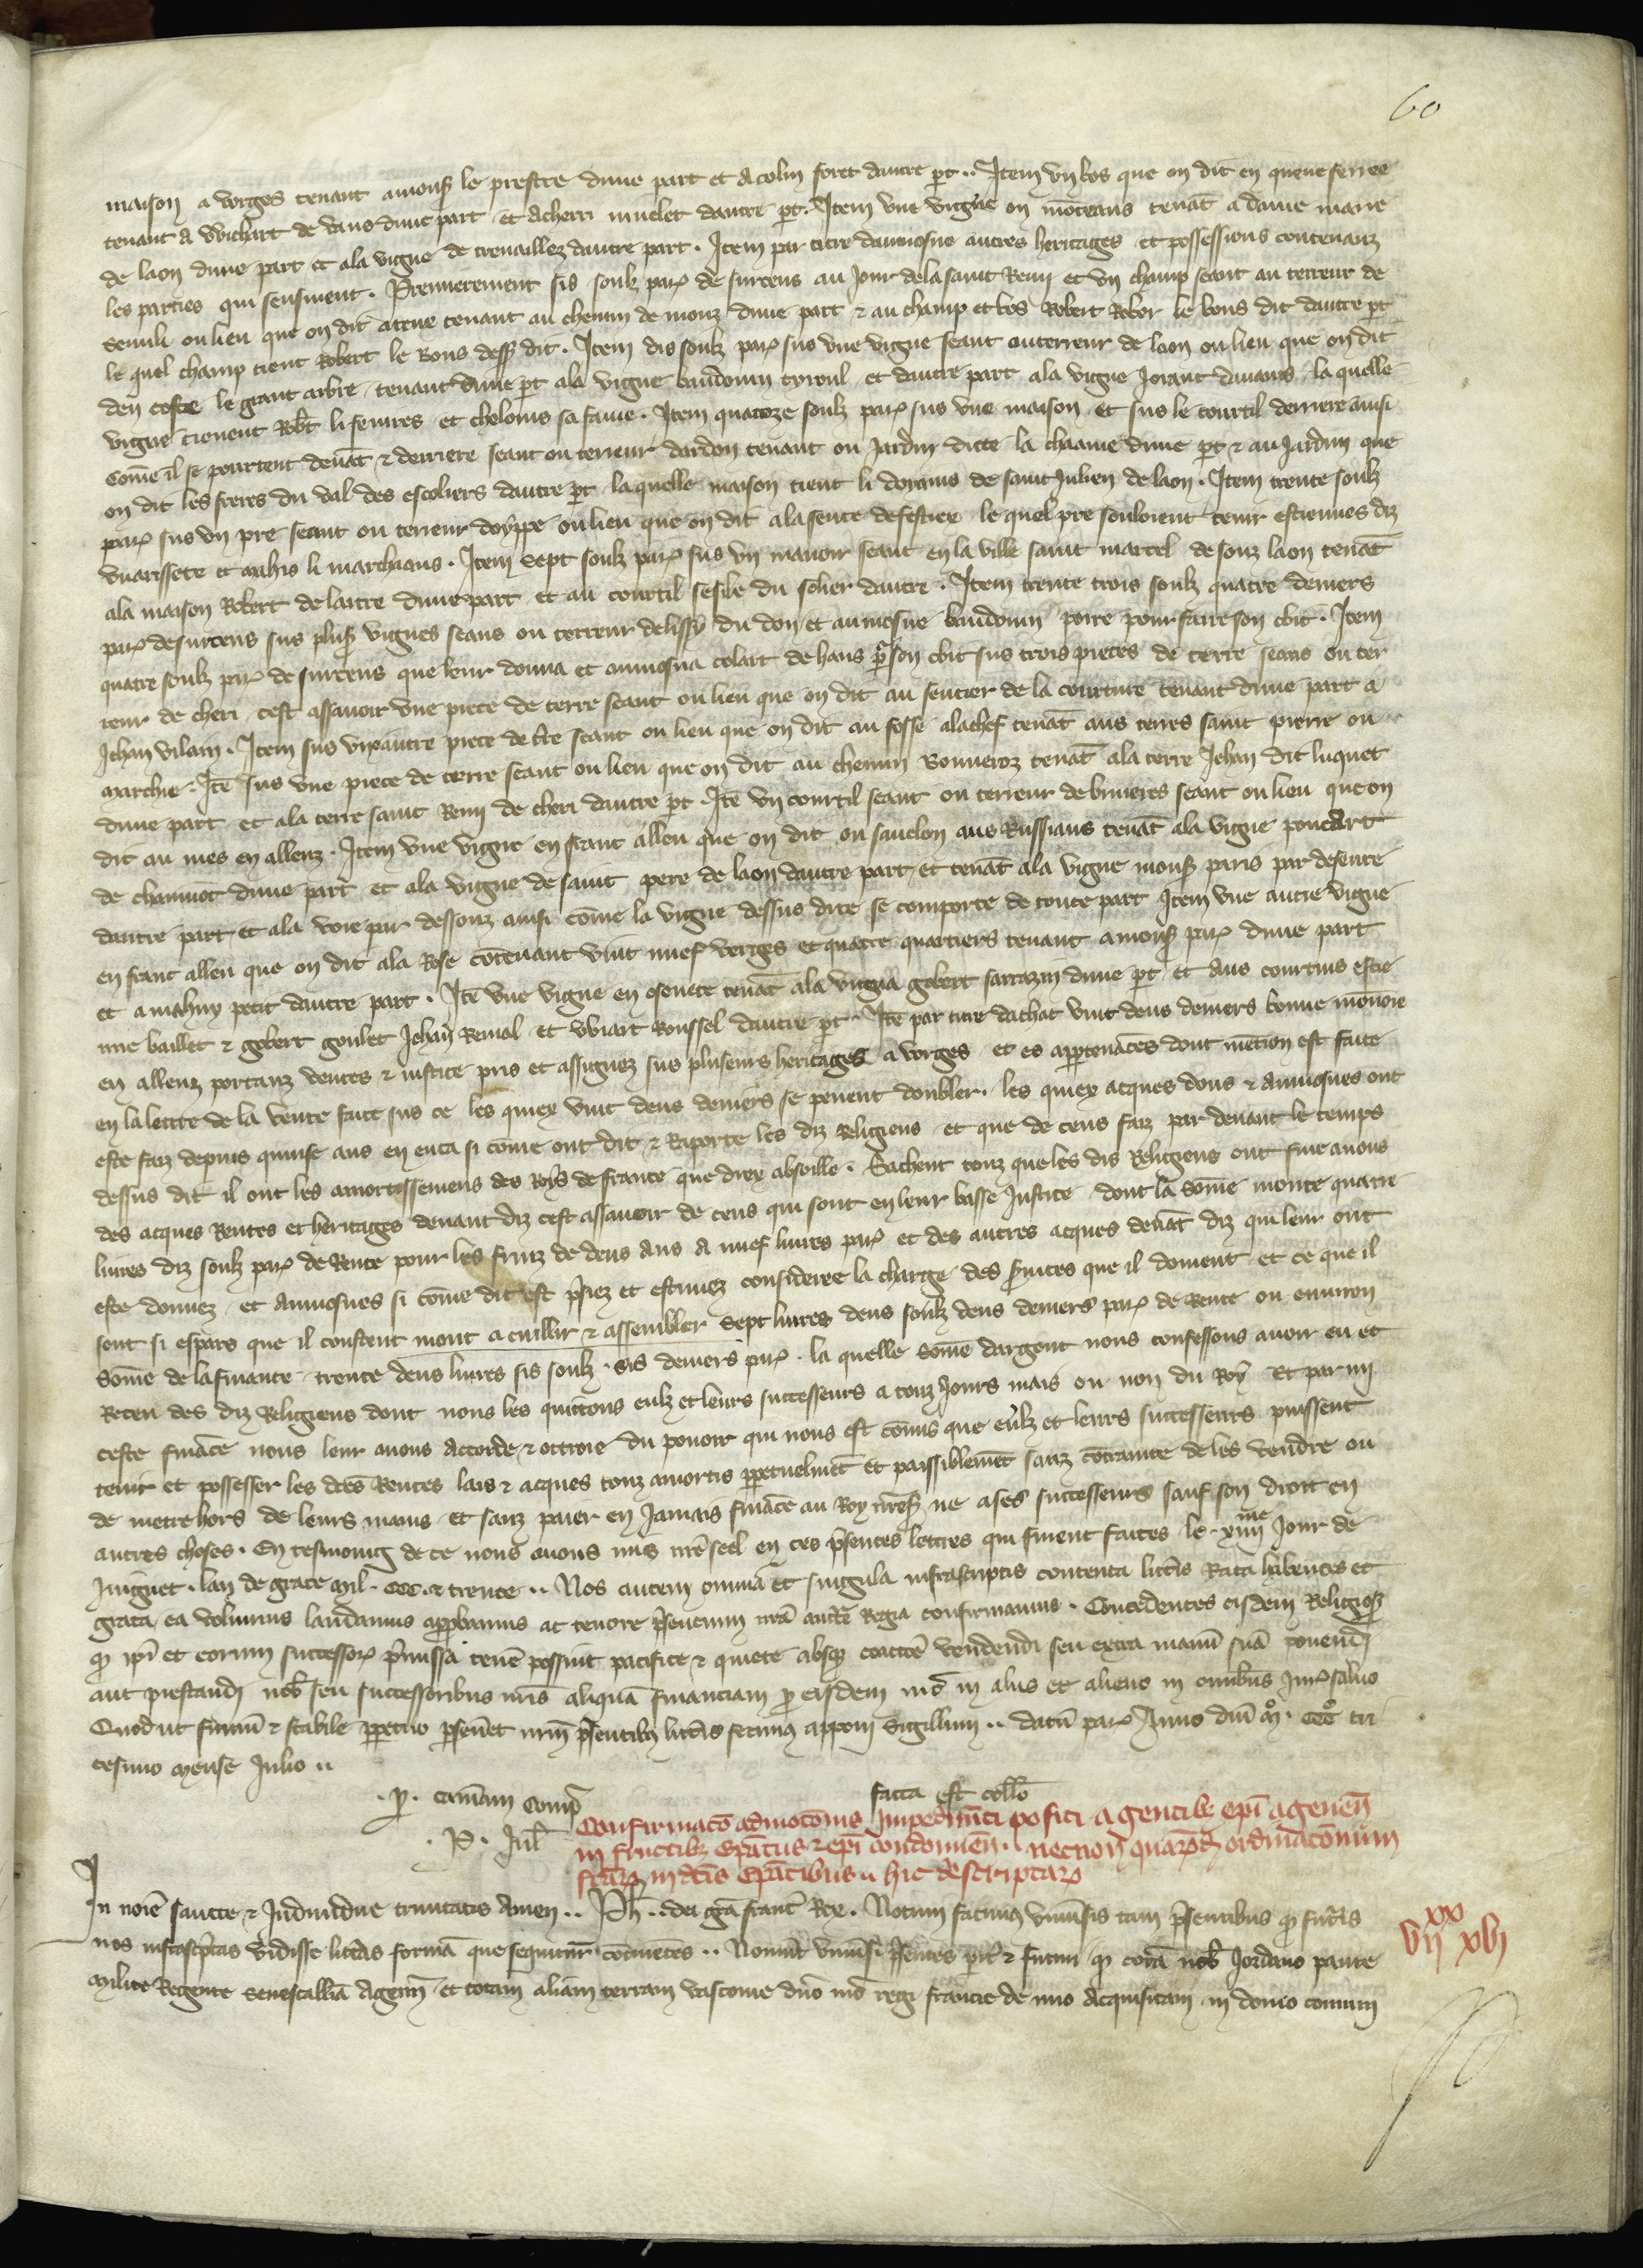 60
maison a vorges tenant a mons le prestre dune part et a colin foret dautre pt .. Item un bos que on dit en queue serree
tenant a Wichart de vaus dune part et a cherri muelet dautre pt . Item une vigne on moteaus tenat a dame marie
de laon dune part et ala vigne de trenaillez dautre part . Item par titre daumosne autres heritages et possessions contenanz
les parties qui sensuient . Premierement sis soulz par de surcens au Jour dela saint Remi et un champ seant au terreur de
semili ou lieu que on dit atene tenant au chemin de monz dune part & au champ et bos Robert Robor le bons dit dautre pt
le quel champ tient Robert le Bons dess dit . Item dis soulz par sus une vigne seant auterreur de laon ou lieu que on dit
den coste le grant arbre tenant dune pt ala vigne baudouin tyroul et dautre part ala vigne Jorant la quelle
vigne tienent Robt li fevres et chelonis sa fame . Item quatorze soulz par sus une maison et sus le courtil derriere ainsi
come il se pourtent devat & derriere seant ou terreur dardon tenant ou Jardin dicte la chaame dune pt & au Jardin que
on dit les freres du val des escoliers dautre pt la quelle maison tient li doyains de saint Julien de laon . Item trente soulz
par sus un pre seant ou terreur doyppe ou lieu que on dit ala sente le quel pre souloient tenir estiennes diz
vuarissete et mahis li marchians . Item sept soulz par sus un manoir seant en la ville saint marcel de souz laon tenat
ala maison Robert de laitre dune part et au courtil sesile du solier dautre . Item trente trois soulz quatre deniers
par de surcens sus plus vignes seans ou terreur delissy du don et aumosne baudouin poire pour faire son obit . Item
quatre soulz par de surcens que leur donna et aumosna colart de hans pr son obit sus trois pieces de terre seans ou ter
reur de cheri cest assavoir une piece de terre seant ou lieu que on dit au sentier de la courture tenant dune part a
Jehan vilain . Item sus une autre piece de tre seant ou lieu que on dit au fosse alachef tenat aus terres saint pierre ou
marchie . Ite sus une piece de terre seant ou lieu que on dit au chemin Bonneroz tenat ala terre Jehan dit huquet
dune part et ala terre saint Remi de cheri dautre pt . Ite un courtil seant ou terreur de brueres seant ou lieu que on
dit au mes en alleuz . Item une vigne en franc alleu que on dit ou sauclon aus Russians tenat ala vigne poncart
de chamuot dune part et ala vigne de saint pere de laon dautre part et tenat ala vigne mons paris par desente
dautre part et ala voie par dessouz ainsi come la vigne dessus dite se comporte de toute part Item une autre vigne
en franc alleu que on dit ala Rose cotenant vint nuef verges et quatre quartiers tenant a mons par dune part
et a mahuy petit dautre part . Ite une vigne en esenete tenat ala vigna gobert sarrazin dune pt et aus courtins estie
nne baillet & gobert goulet Jehan Remol et Wiart Roussel dautre pt . Ite par titre dachat vint deus deniers bonne monoie
en alleuz portanz ventes & iustice pris et assignez sus plusieurs heritages a vorges et es appartenaces dont metion est faite
en la lettre de la vente faite sus ce les quiex vint deus deniers se peuent doubler . les quiex acques dons & aumosnes ont
este faiz depuis quinse ans en enca si come ont dit & Raporte les diz Religieus et que de ceus faiz par devant le temps
dessus dit il ont les amortissemens des Roys de france que diex absoille . Sachent touz que les dis Religieus ont fine avons
des acques Rentes et heritages devant diz cest assavoir de ceus qui sont en leur basse Justice dont la some monte quatre
livres diz soulz par de Rente pour les fruiz de deus ans a nuef livres par et des autres acques devat diz qui leur ont
este donnez et aumosnes si come dit est prsiez et estimez consideree la charge des srvices que il doivent et ce que il
sont si espars que il coustent mont a cuillir & assembler sept livres deus soulz deus deniers par de Rente ou environ
Some de la finance trente deus livres sis soulz . sis deniers par . la quelle some dargent nous confessons avoir eu et
Receu des diz Religieus dont nous les quittons eulz et leurs successeurs a touz Jours mais ou non du Roy Et par mi
ceste finace nous leur avons accorde & ottroie du pouoir qui nous est comis que eulz et leurs successeurs puissent
tenir et possesser les dtes Rentes lais & acques touz amortis ppetuelmet et paissiblemet sanz cotrainte de les vendre ou
de mettre hors de leurs mains et sanz paier en Jamais finace au Roy nres ne a ses successeurs sauf son droit en
autres choses . En tesmoing de ce nous avons mis nre seel en ces prsentes lettres qui furent faites le . xiiiime Jour de
Juignet . lan de grace mil . ccc . & trente .. Nos autem omnia et singula infrascriptis contenta litteris Rata habentes et
grata ea volumus laudamus approbamus ac tenore prsentium nra auct Regia confirmamus . Concedentes eisdem Religios
q ipi et eorum successor prmissa tene possint pacifice & quiete absq coactoe vendendi seu extra manu sua ponendi
aut prestandi nob seu successoribus nris aliqua financiam p eisdem nro in aliis et alieno in omibus Jur salvo
Quod ut firmu & stabile ppetuo psevet nrm prsentib litteris fecim apponi Sigillum .. datu par Anno dni mo . ccco tri
cesimo mense Julio ..
. p . cameram comp
facta est coll
. P . Jul
Confirmaco admotonis Impedimti positi a gentib epi agenen
in fructib epatus & epi condomien . necnon quarumd ordinaconum
fcar in dcis epatibus .. hic descriptar
In noie sancte & Individue trinitatis Amen .. Ph .. dei gra franc Rex . Notum facim univsis tam prsentibus q futris
nos infrascptas vidisse litteras forma que sequitur cotinetes .. Noverint univsi prsentes pit & futuri q cora nob Jordano paute
milite Regente senescallia Agenn et totam aliam terram vasconie dno nro regi francie de novo acquisitam in domo comuni
xx
vii xvii